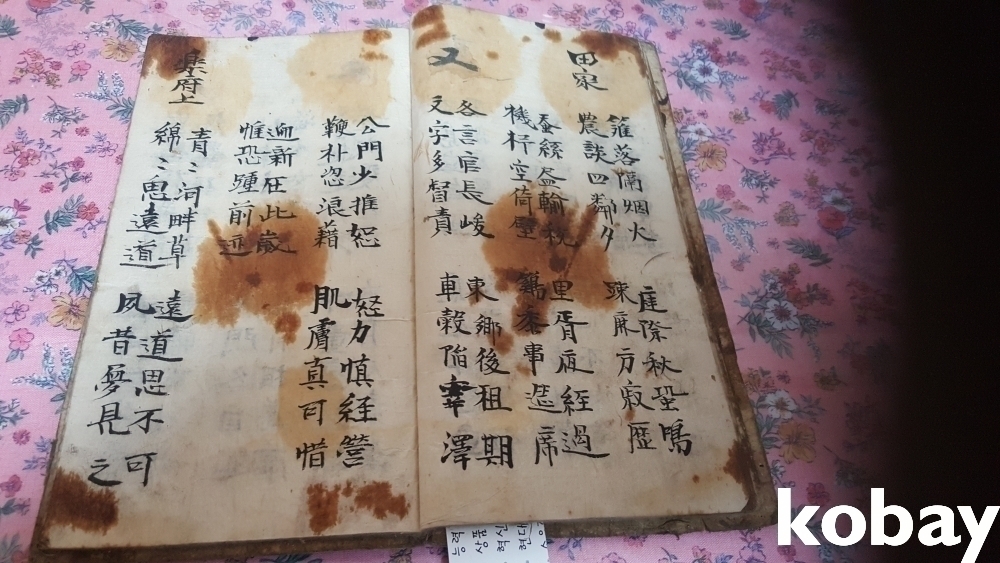 田家
籬落隔烟火
農談四鄰夕
庭際秋蛩鳴
疎麻方寂歷
蚕絲盡輸稅
機杼空倚壁
里胥夜經過
鷄黍事筵席
又
各言官長峻
文字多督責
東鄉後租期
車轂陷澤
公門少推恕
鞭朴恣浪藉
怒力慎経營
肌膚真可惜
迎新在此歲
惟恐踵前迹
樂府上
青〻河畔草
綿〻思遠道
遠道思不可
夙昔夢見之
kobay